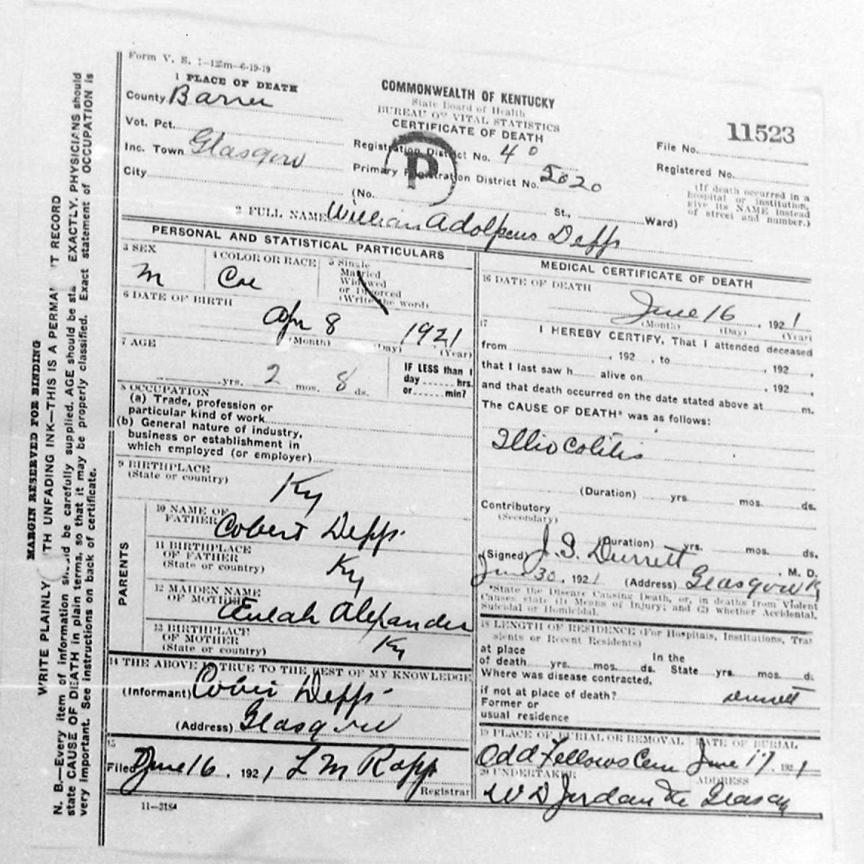 Form V. S. 1-125m-6-19-19
1 PLACE OF DEATH
County Barren
Vot. Pct.
Inc. Town Glasgow
City
COMMONWEALTH OF KENTUCKY
State Board of Health
BUREAU OF VITAL STATISTICS
CERTIFICATE OF DEATH
Registration District No. 40
Primary Registration District No. 5020
P
(No. St., Ward)
11523
File No.
Registered No.
(If death occurred in a
hospital or institution,
give its NAME instead
of street and number.)
2 FULL NAME William Adolpeus Depp
PERSONAL AND STATISTICAL PARTICULARS
3 SEX
M
4 COLOR OR RACE
Col
5 Single
Married
Widowed
or Divorced
(Write the word)
6 DATE OF BIRTH
Apr 8 1921
(Month) (Day) (Year)
7 AGE
yrs. 2 mos. 8 ds.
IF LESS than 1
day hrs.
or min?
8 OCCUPATION
(a) Trade, profession or
particular kind of work
(b) General nature of industry,
business or establishment in
which employed (or employer)
9 BIRTHPLACE
(State or country)
Ky
PARENTS
10 NAME OF
FATHER Cobert Depp
11 BIRTHPLACE
OF FATHER
(State or country)
Ky
12 MAIDEN NAME
OF MOTHER Eulah Alexander
13 BIRTHPLACE
OF MOTHER
(State or country)
Ky
14 THE ABOVE IS TRUE TO THE BEST OF MY KNOWLEDGE
(Informant) Depp
(Address) Glasgow
15
Filed June 16, 1921 L M Rapp
Registrar
11-3184
MEDICAL CERTIFICATE OF DEATH
16 DATE OF DEATH
June 16, 1921
(Month) (Day) (Year)
17
I HEREBY CERTIFY, That I attended deceased
from , 192 , to , 192
that I last saw h alive on , 192
and that death occurred on the date stated above at m.
The CAUSE OF DEATH* was as follows:
Illio Colitis
(Duration) yrs. mos. ds.
Contributory
(Secondary)
(Duration) yrs. mos. ds.
(Signed) J. S. Durrett, M. D.
June 30, 1921 (Address) Glasgow Ky
*State the Disease Causing Death, or, in deaths from Violent
Causes state (1) Means of Injury; and (2) whether Accidental,
Suicidal or Homicidal.
18 LENGTH OF RESIDENCE (For Hospitals, Institutions, Tran
sients or Recent Residents)
at place In the
of death yrs. mos. ds. State yrs. mos. d
Where was disease contracted,
if not at place of death? Durrett
Former or
usual residence
19 PLACE OF BURIAL OR REMOVAL DATE OF BURIAL
Odd Fellows Cem June 17, 1921
20 UNDERTAKER ADDRESS
W D Jordan
MARGIN RESERVED FOR BINDING
WRITE PLAINLY TH UNFADING INK—THIS IS A PERMA T RECORD
N. B.—Every item of information sh ld be carefully supplied. AGE should be sta EXACTLY. PHYSICIANS should
state CAUSE OF DEATH in plain terms, so that it may be properly classified. Exact statement of OCCUPATION is
very important. See instructions on back of certificate.